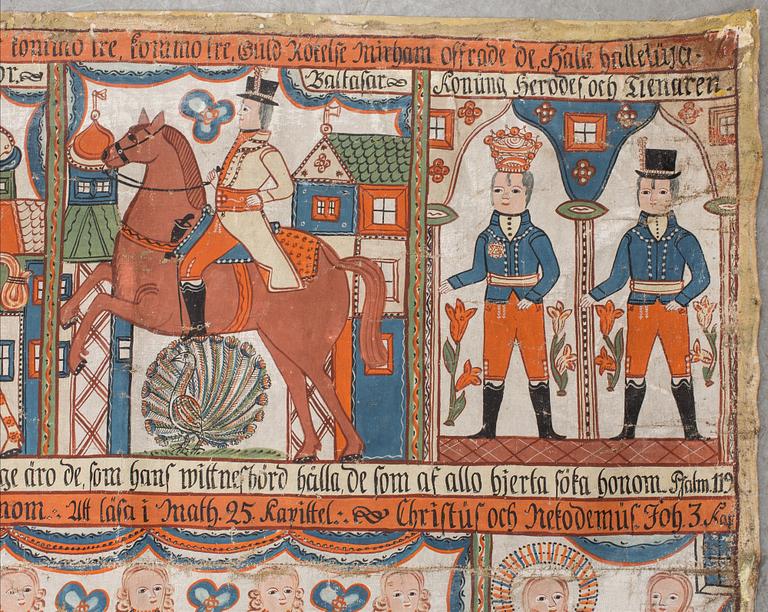 kommo tre, kommo tre, Guld Rökelse Mirham offrade de, Halle halleluja.
Baltasar
Konung Herodes och Tienaren.
ge äro de, som hans wittnesbörd hålla, de som af allo hjerta söka honom. Psalm. 119
nom. Att läsa i Math. 25. Kapittel. Christus och Nekodemus. Joh. 3. Kap